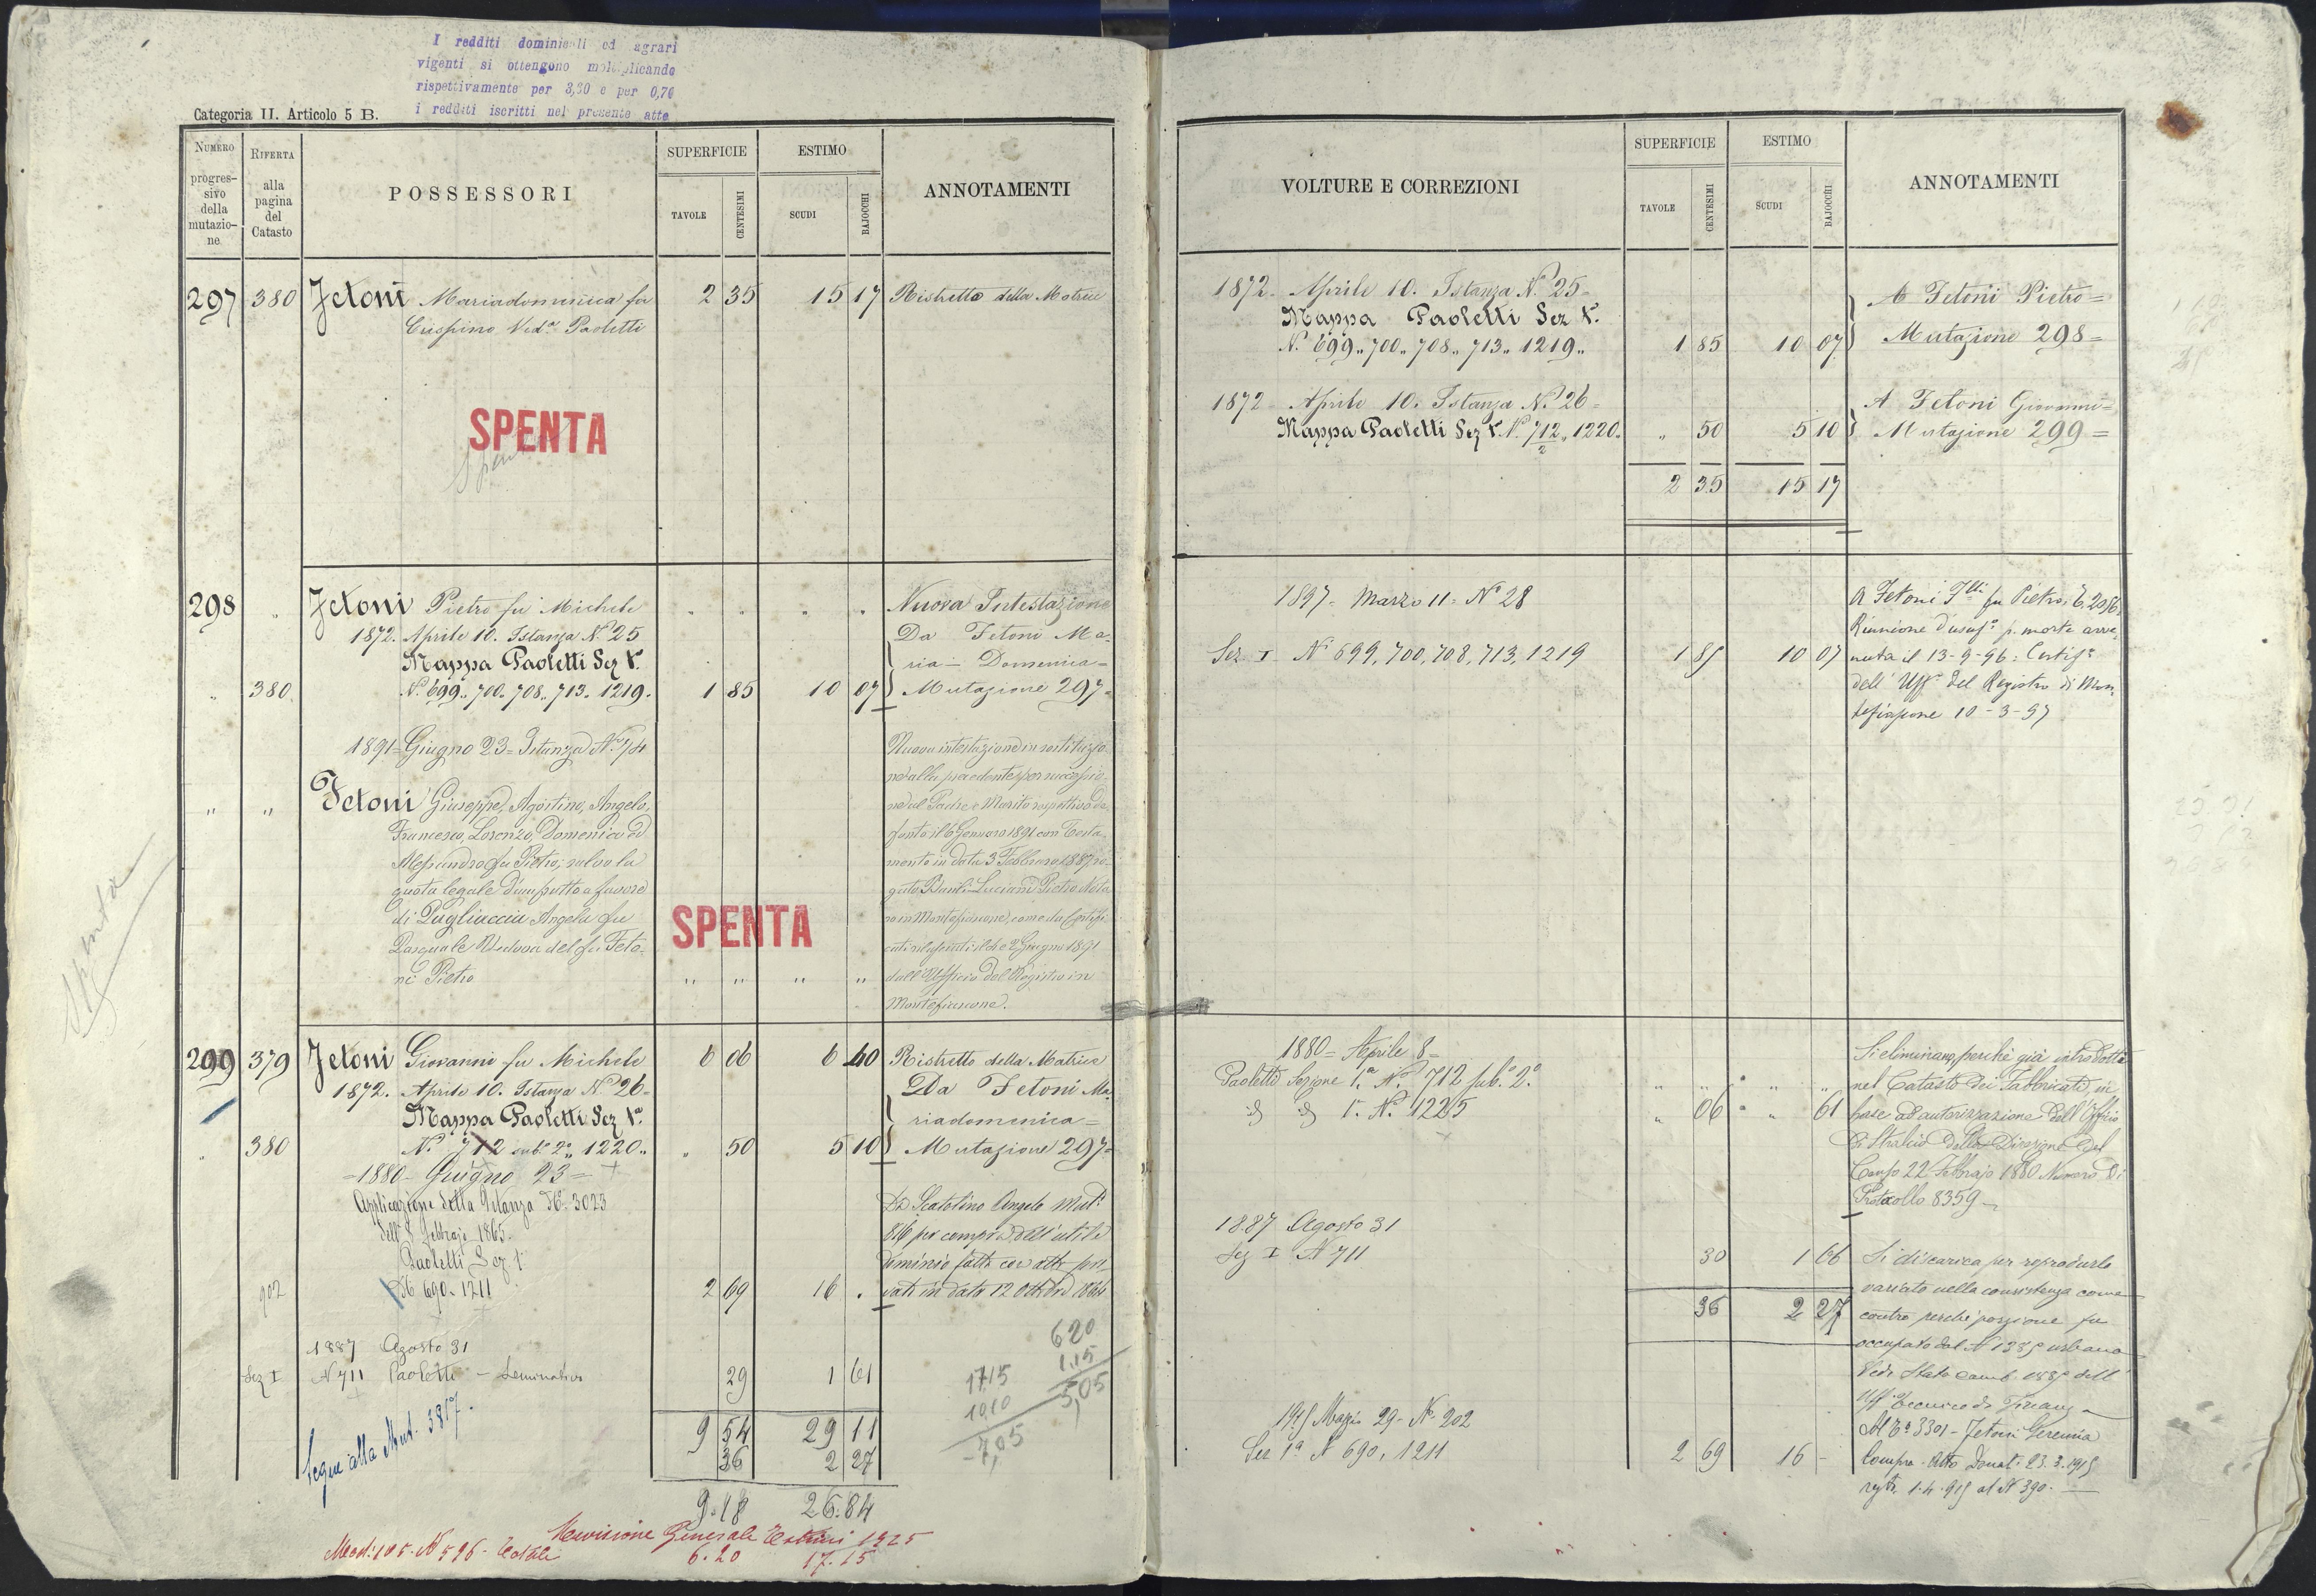 I redditi dominicali ed agrari
vigenti si ottengono moltiplicando
rispettivamente per 3,30 e per 0,70
i redditi iscritti nel presente atto
Categoria II. Articolo 5 B.
NUMERO progres-sivo della mutazio-ne
RIFERTA alla pagina del Catasto
POSSESSORI
SUPERFICIE
TAVOLE
CENTESIMI
ESTIMO
SCUDI
BAJOCCHI
ANNOTAMENTI
297 380 Fetoni Mariadomenica fu 2 35 15 17 Ristretto della Matrice
Crispino Ved.a Paoletti
SPENTA
Spenta
298 " Fetoni Pietro fu Michele " " " " Nuova Intestazione
1872. Aprile 10. Istanza N.° 25 Da Fetoni Ma-
Mappa Paoletti Sez 1.a ria Domenica =
" 380 N.° 699 " 700 " 708 " 713 " 1219 " 1 85 10 07 Mutazione 297 =
1891 = Giugno 23 = Istanza N.° 74
" " Fetoni Giuseppe, Agostino, Angelo,
Francesco, Lorenzo, Domenico ed
Alessandro fu Pietro; salvo la
quota legale d'usufrutto a favore
di Pugliaccia Angela fu
Pasquale Vedova del fu Feto-
ni Pietro " " " "
Nuova intestazione in sostituzio-
ne alla precedente per successio-
ne al Padre e Marito rispettivo de-
funto il 6 Gennaro 1891 con Testa-
mento in data 3 Febbraro 1887 ro-
gato Luciano Pietro Nota-
ro in Montefiascone, come da Certifi-
cati rilasciati il e 2 Giugno 1891
dall'Ufficio del Registro in
Montefiascone.
SPENTA
Spenta
299 379 Fetoni Giovanni fu Michele 6 06 6 40 Ristretto della Matrice
1872. Aprile 10. Istanza N.° 26 = Da Fetoni Ma-
Mappa Paoletti Sez 1.a riadomenica =
" 380 N.° 712 sub.° 2.° 1220 " " 50 5 10 Mutazione 297 =
= 1880 - Giugno 23 =
Applicazione della Istanza N.° 3023
dell' 8 febbrajo 1865.
Paoletti Sez 1.a
902 N.° 690 - 1211 2 69 16 .
Da Scatolino Angelo Mut.e
816 per compra dell'utile
dominio fatta con atto pri-
vato in data 12 Ottobre 1864
1887 Agosto 31
Sez I N 711 Paoletti - Seminativo 29 1 61
9 54 29 11
36 2 27
9.18 26.84
Segue alla Mut. 3817.
620
1.15
5,05
17.15
10.10
7,05
Revisione Generale Estimi 1925
Mod: 105. N 596 - Totali 6.20 17.15
VOLTURE E CORREZIONI
SUPERFICIE
TAVOLE
CENTESIMI
ESTIMO
SCUDI
BAJOCCHI
ANNOTAMENTI
1872 - Aprile 10. Istanza N.° 25 = A Fetoni Pietro =
Mappa Paoletti Sez 1.a
N.° 699 " 700 " 708 " 713 " 1219 " 1 85 10 07 Mutazione 298 =
1872 - Aprile 10. Istanza N.° 26 = A Fetoni Giovanni =
Mappa Paoletti Sez 1.a N.° 712/2 " 1220. " 50 5 10 Mutazione 299 =
2 35 15 17
1897. Marzo 11. N° 28
Sez I N° 699, 700, 708, 713, 1219 1 85 10 07
A Fetoni F.lli fu Pietro
Riunione d'usuf.o p. morte avve-
nuta il 13-9-96: Certif.o
dell' Uff.o del Registro di Mon-
tefiascone 10-3-97
1880 = Aprile 8 =
Paoletti Sezione 1.a N.° 712 sub.° 2.° " " " "
1.a N.° 1225 " 06 " 61
Si eliminano, perchè già introdotta
nel Catasto dei Fabbricati in
base ad autorizzazione dell' Officio
di Stralcio della Direzione del
Censo 22 Febbrajo 1880 Numero di
Protocollo 8359
1887 Agosto 31
Sez I N 711 30 1 66 Si discarica per riprodurlo
variato nella consistenza come
36 2 27 contro perchè porzione fu
occupato dal N 1385 urbano
Vedi Stato Camb. 1885 dell'
Uff. Tecnico di Finanza
1915 Marzo 29 - N. 202 Al 3301 - Fetoni Geremia
Sez 1a N 690, 1211 2 69 16 - Compra - Atto Donat. 23.3.1915
regto. 1.4.915 al N 390.